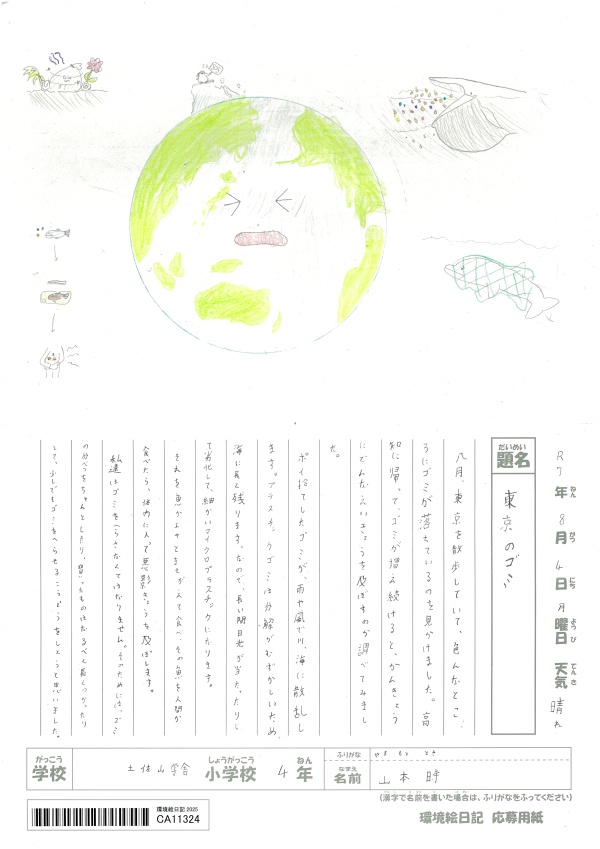 R7年ねん 8月がつ 4日にち 月曜日ようび 天気てんき 晴れ
だいめい
題名
東京のゴミ
八月、東京を散歩していて、色んなとこ
ろにゴミが落ちているのを見かけました。高
知に帰って、ゴミが増え続けると、かんきょう
にどんなえいきょうを及ぼすのか調べてみまし
た。
ポイ捨てしたゴミが、雨や風で川、海に散乱し
ます。プラスチックゴミは分解がむずかしいため、
海に長く残ります。なので、長い間日光が当たったりし
て劣化して、細かいマイクロプラスチックになります。
それを魚がエサとまちがえて食べ、その魚を人間が
食べたら、体内に入って悪影きょうを及ぼします。
私達はゴミをへらさなくてはなりません。そのためには、ゴミ
の分べつをちゃんとしたり、買ったものはなるべく長くつかったり
して、少しでもゴミをへらせるこうどうをしようと思いました。
がっこう
学校
土佐山学舎
しょうがっこう
小学校
4年ねん
ふりがな
やまもと とき
なまえ
名前
山本
(漢字で名前を書いた場合は、ふりがなをふってください)
環境絵日記2025
CA11324
環境絵日記 応募用紙